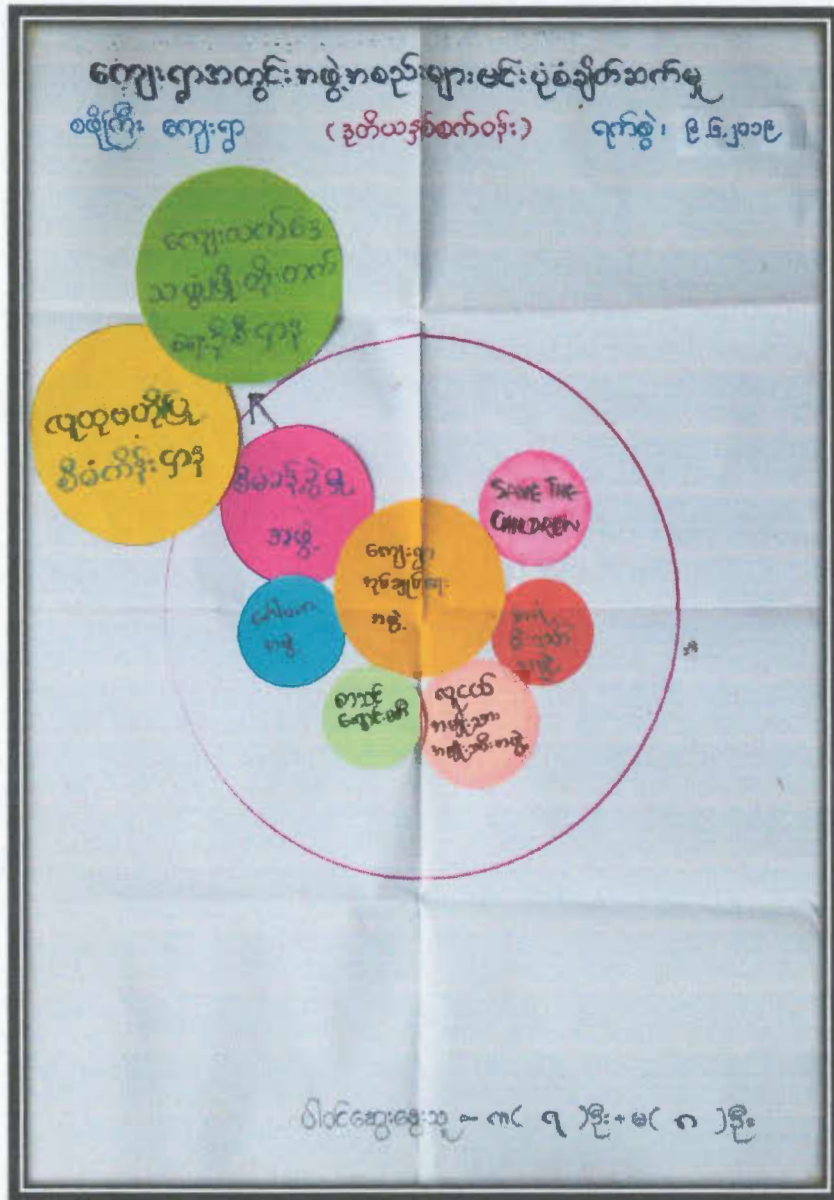 ကျေးရွာအတွင်းအဖွဲ့အစည်းများမင်းပုံစံချိတ်ဆက်မှု
စဖိုကြီး ကျေးရွာ (ဒုတိယနှစ်စက်ဝန်း) ရက်စွဲ၊ ၉.၆.၂၀၁၉
ကျေးလက်ဒေသ
ဖွံ့ဖြိုးတိုးတက်
ရေးဦးစီးဌာန
လူထုဗဟိုပြု
စီမံကိန်းဌာန
စီမံခန့်ခွဲမှု
အဖွဲ့
SAVE THE
CHILDREN
ကျေးရွာ
အုပ်ချုပ်ရေး
အဖွဲ့
အဖွဲ့
အဖွဲ့
စာသင်
ကျောင်း
လူငယ်
အမျိုးသား
အမျိုးသမီးအဖွဲ့
ပါဝင်ဆွေးနွေးသူ - ကျား( ၇ )ဦး + မ( ၈ )ဦး